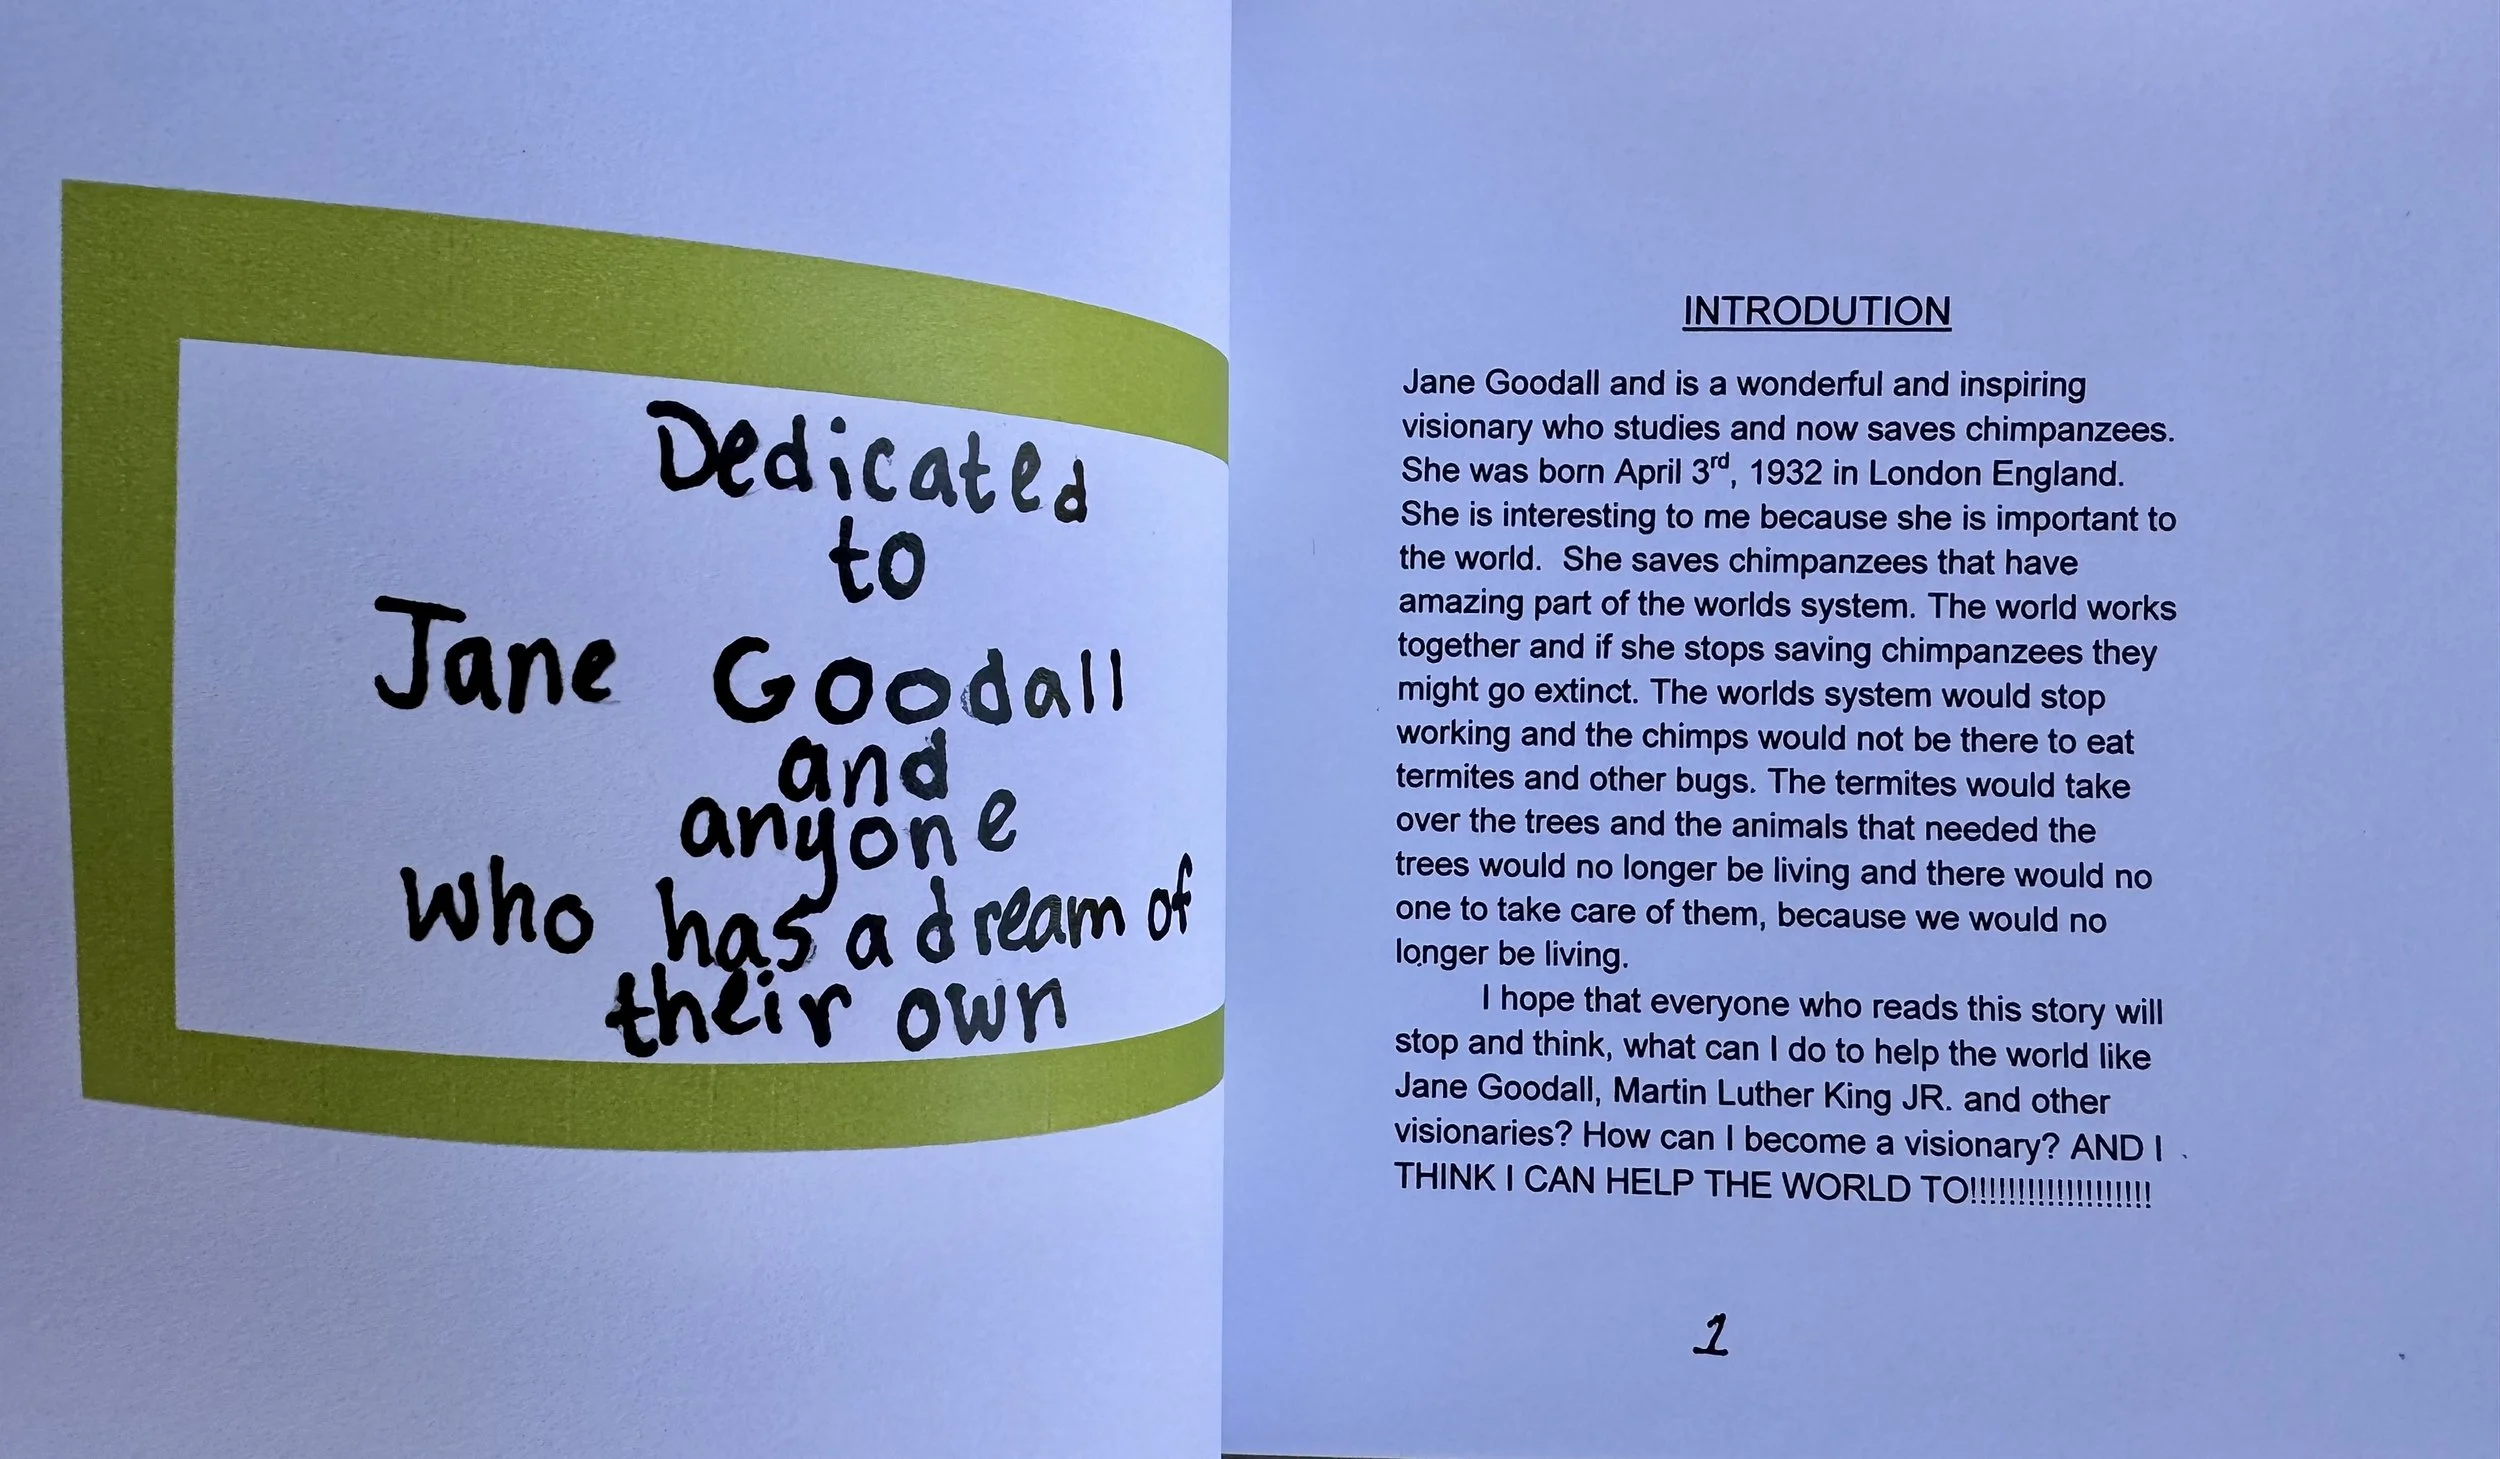 Dedicated
to
Jane Goodall
and
anyone
who has a dream of
their own
INTRODUTION
Jane Goodall and is a wonderful and inspiring
visionary who studies and now saves chimpanzees.
She was born April 3rd, 1932 in London England.
She is interesting to me because she is important to
the world.  She saves chimpanzees that have
amazing part of the worlds system. The world works
together and if she stops saving chimpanzees they
might go extinct. The worlds system would stop
working and the chimps would not be there to eat
termites and other bugs. The termites would take
over the trees and the animals that needed the
trees would no longer be living and there would no
one to take care of them, because we would no
longer be living.
I hope that everyone who reads this story will
stop and think, what can I do to help the world like
Jane Goodall, Martin Luther King JR. and other
visionaries? How can I become a visionary? AND I
THINK I CAN HELP THE WORLD TO!!!!!!!!!!!!!!!!!!!!
1